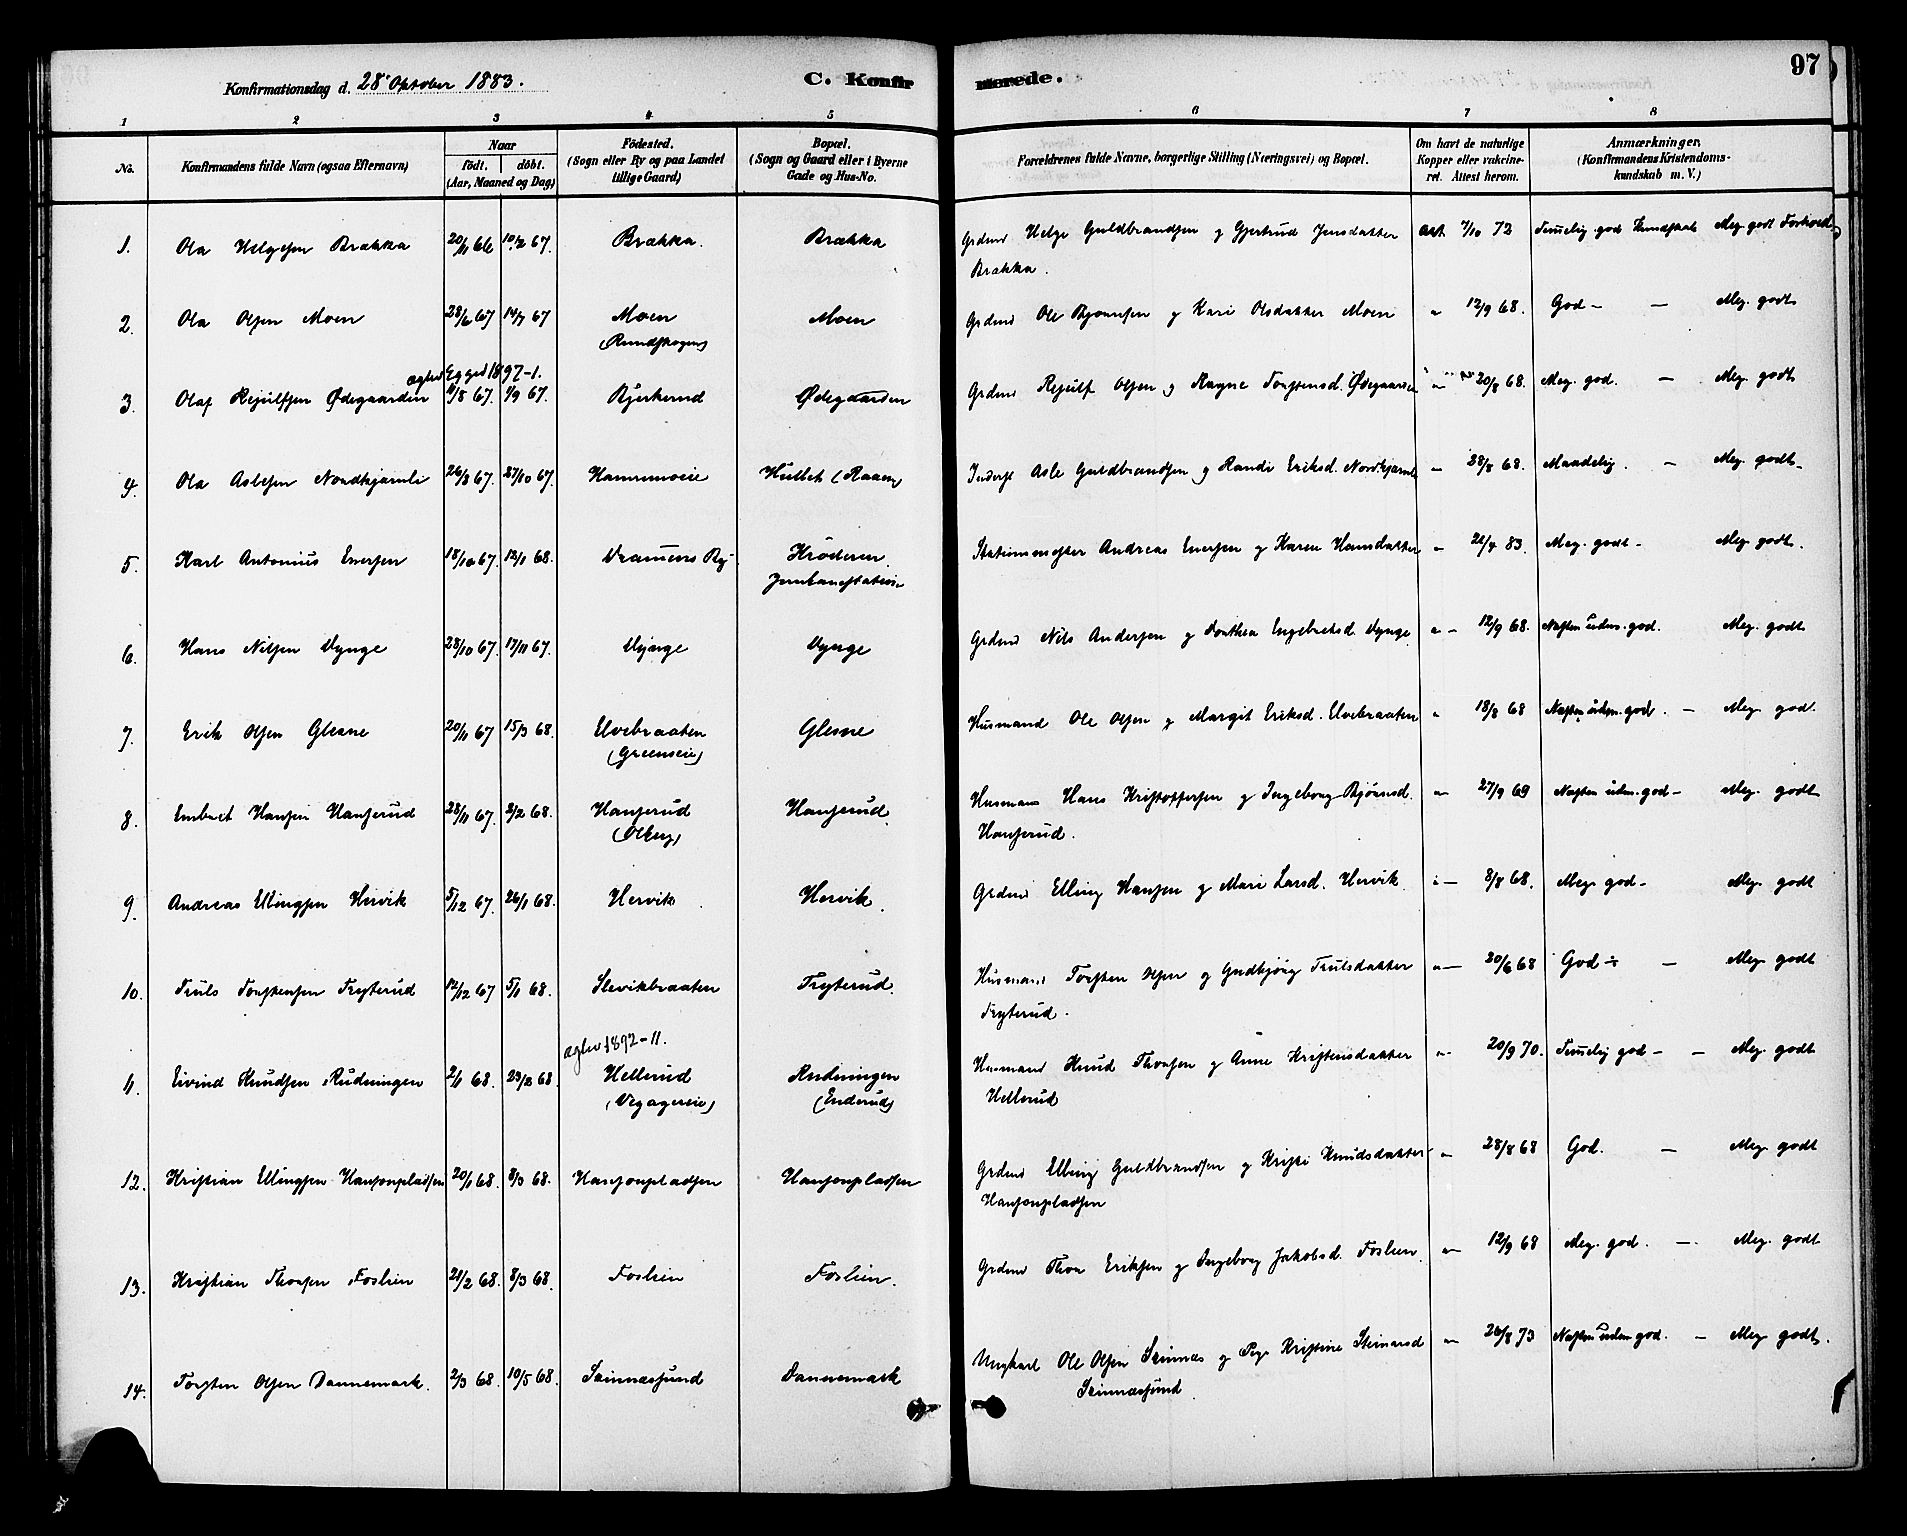 Konfirmationsdag d. 28 Oktober 1883. C. Konfirmerede. 97
1 2 3 4 5 6 7 8
No. Konfirmandens fulde Navn (ogsaa Efternavn) Naar Fødested. Bopæl. Forældrenes fulde Navne, borgerlige Stilling (Næringsvei) og Bopæl. Om havt de naturlige Anmærkninger,
født. døbt. (Sogn eller By og paa Landet (Sogn og Gaard eller i Byerne Kopper eller vakcine- (Konfirmandens Kristendoms-
(Aar, Maaned og Dag) tillige Gaard) Gade og Hus-No. ret. Attest herom. kundskab m. V.)
1. Ola Helgesen Brækka 20/11 66 10/2 67. Brækka. Brækka Grdmd Helge Guldbrandsen og Gjertrud Jensdatter Att 7/10 72 Temmelig god Kundskab Meg. godt Forhold
Brækka.
2. Ola Olsen Moen 28/6 67 14/7 67 Moen Moen Grdmd Ole Bjørnsen og Kari Olsdatter Moen " 12/9 68. God - — Meg. godt
(Rundskogen)
1897-1.
3. Olaf Rejulfsen Ødegaarden 11/8 67. 1/9 67. Bjerkerud Ødegaarden Grdmd Rejulf Olsen og Ragne Torstensd. Ødegaarden " 20/8 68. Meg. god. — Meg. godt
4. Ola Aslesen Nordhjærnli 26/8 67. 27/10 67. Hamremoeie Hullet (Raaen) Inderst Asle Guldbrandsen og Randi Eriksd. Nordhjærnli " 28/8 68. Maadelig. — Meg. godt-
5. Karl Antonius Enersen 18/10 67. 12/1 68. Dramens By Krøderen Stationsmester Andreas Enersen og Karen Hansdatter " 21/4 83. Meg. godt - Meg. godt.
Jernbanestation
6. Hans Nilsen Vynge 28/10 67. 17/11 67. Vynge Vynge Grdmd Nils Andersen og Dorthea Engebretsd. Vynge " - 12/9 68. Næsten udm. god. Meg. godt
7. Erik Olsen Glesne 20/11 67 15/3 68. Elvebraaten Glesne Husmand Ole Olsen og Margit Eriksd. Elvebraaten " 18/8 68 Næsten udm. god. — Meg. god.
(Greenseie)
8. Embret Hansen Hanserud 28/11 67. 2/2 68. Hanserud Hanserud Husmand Hans Kristoffersen og Ingeborg Bjørnsd. " 27/9 69 Næsten udm. god - Meg. godt
Hanserud.
9. Andreas Ellingsen Hervik 5/12 67. 26/1 68. Hervik. Hervik. Grdmd Elling Hansen og Mari Larsd. Hervik. " — 8/8 68. Meg. god - Meg. godt
10. Truls Torstensen Tryterud 12/12 67 5/1 68. Slevikbraaten Tryterud. Husmand Torsten Olsen og Gudbjørg Trulsdatter " — 30/6 68 God ÷ — Meg. godt
Tryterud.
1892-11.
11. Eivind Knudsen Rudningen 2/1 68. 23/2 68. Hellerud Rudningen Husmand Knud Thorsen og Anne Kristensdatter " 20/9 70. Temmelig god - — Meg. godt
(Vegagereie) (Enderud) Hellerud
12. Kristian Ellingsen Hansonpladsen 20/1 68. 8/3 68. Hansonpladsen Hansonpladsen Grdmd Elling Guldbrandsen og Kristi Knudsdatter " 28/8 68 God. — Meg. godt
Hansonpladsen
13. Kristian Thorsen Foslien 21/2 68. 8/3 68. Foslien Foslien. Grdmd Thor Eriksen og Ingeborg Jakobsd. Foslien " 12/9 68 Meg. god. — Meg. godt
14. Torsten Olsen Dannemark. 2/3 68. 10/5 68. Skinnæssund Dannemark Ungkarl Ole Olsen Skinnes og Pige Kristine Steinarsd " 26/8 73 Næsten udm god. — Meg. godt.
Skinnæssund.